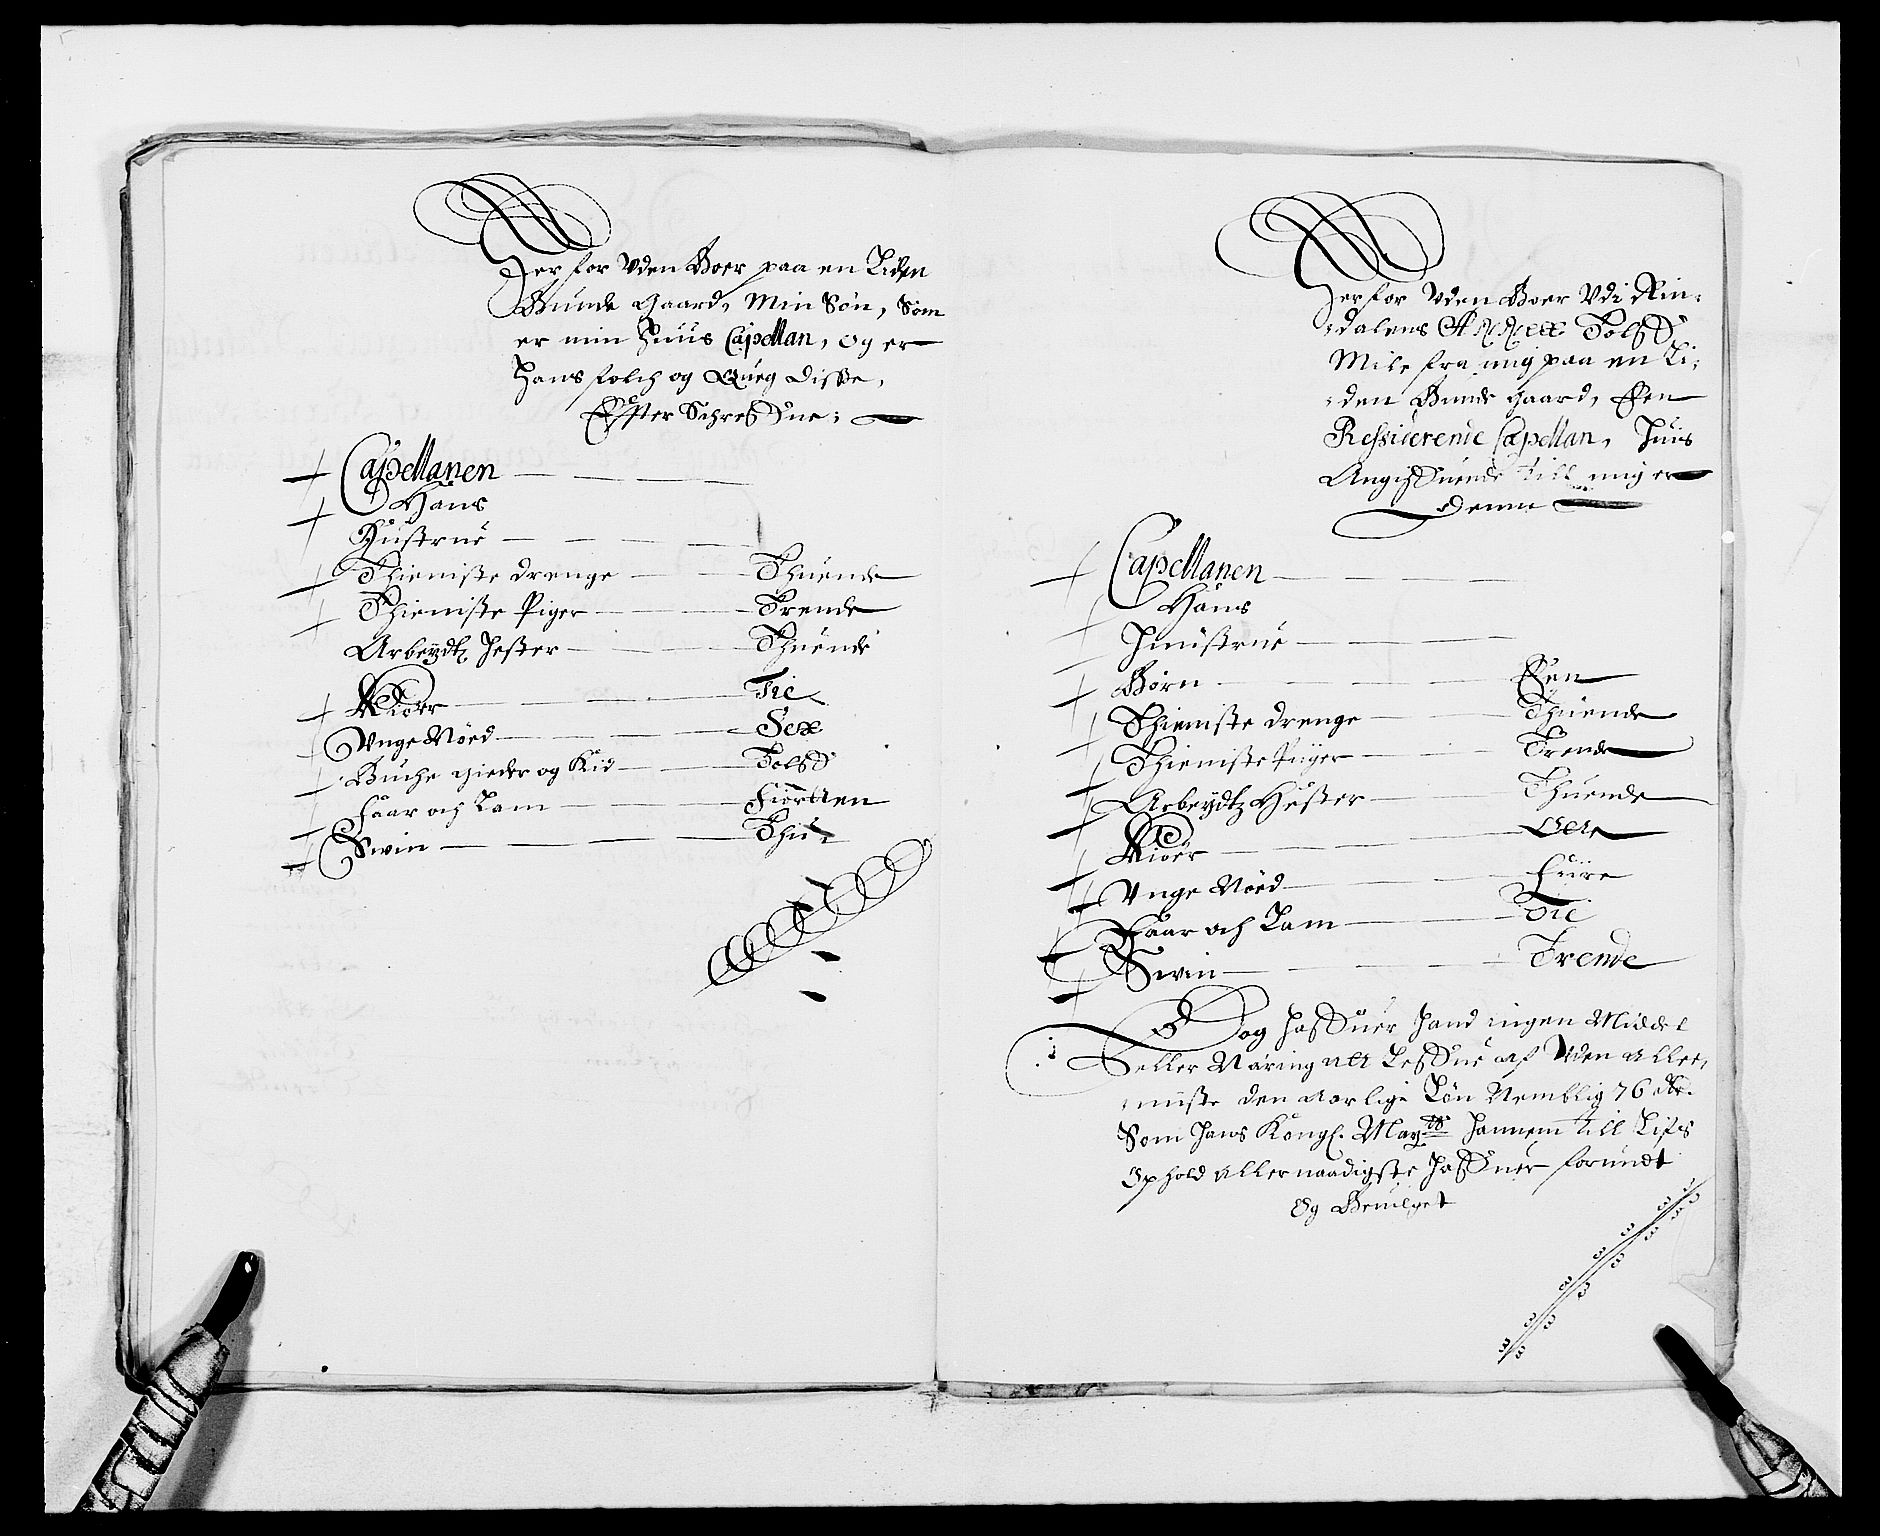 Herfor Uden Boer paa en Liden
Bunde Gaard, Min Søn, Som
er min Huus Capellan, og er
Hans folch og Qüeg disse,
Effter Schreffüne:
Capellanen
Hans
Hustrue
Thieniste drenge Thuende
Thieniste Piger Trende
Arbeydtz Hester Thuende
Kiøer Tie
Unge Nøed Sex
Buche gieder og Kid Tolff
Faar och Lam Fiortten
Swin Thu
Herfor Uden Boer Udi Rin:
:dalens Annex Tolff
Mile fra mig paa en Li:
:den Bunde Gaard, Een
Ressiderende Capellan, Huis
Angiffuende till mig er
denne
Capellanen
Hans
Huustrue
Børn Een
Thieniste drenge Thuende
Thieniste Piiger Trende
Arbeydtz Hester Thuende
Kiøer
Unge Nøed Fiire
Faar och Lam Tie
Swin Trende
Dog haffuer Hand ingen Middel
eller Næring att Leffue af Uden aller,
:ministe den Aarlige Løn Nemblig 76 Rdr.
Som Hans Kongl. Maytt Hannem till Lifs
Ophold allernaadigste Haffuer forundt
Og Beuilget